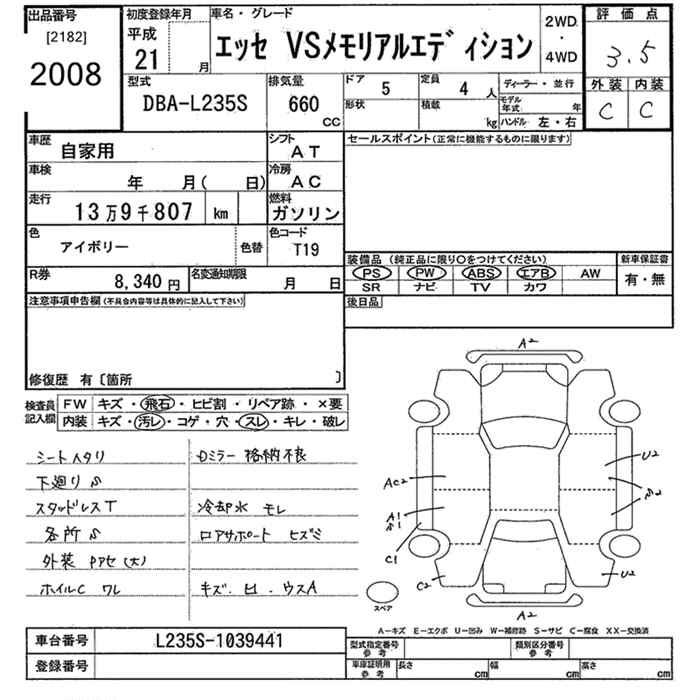 出品番号
[2182]
2008
初度登録年月
平成
21 月
車名・グレード
エッセ VSメモリアルエディション
2WD
・
4WD
評価点
3.5
外装 内装
C C
型式
DBA-L235S
排気量
660
CC
ドア 5
形状
定員 4 人
積載 kg
ディーラー・並行
モデル年式 年
ハンドル 左・右
車歴 自家用
シフト AT
車検 年 月( 日)
冷房 AC
走行 13万9千807 km
燃料 ガソリン
色 アイボリー 色替
色コード T19
R券 8,340 円
名変通知期限 月 日
セールスポイント(正常に機能するものに限ります)
装備品 (純正品に限り○をつけてください)
新車保証書
PS PW ABS エアB AW
SR ナビ TV カワ
有・無
後日品
注意事項申告欄(不具合内容等は具体的に記入して下さい)
修復歴 有〔箇所 〕
検査員記入欄
FW キズ・飛石・ヒビ割・リペア跡・×要
内装 キズ・汚レ・コゲ・穴・スレ・キレ・破レ
シートヘタリ
Dミラー 格納不良
下廻り S
スタッドレスT
冷却水 モレ
各所 S
ロアサポート ヒズミ
外装 Pアセ(大)
ホイルC ワレ
キズ.凹.ウスA
A2
U2
AC2
S2
A1
S1
C1
C2
U2
A2
スペア
A－キズ E－エクボ U－凹み W－補修跡 S－サビ C－腐食 XX－交換済
車台番号 L235S-1039441
登録番号
型式指定番号 参考
類別区分番号 参考
車庫証明用 参考
長さ cm
幅 cm
高さ cm